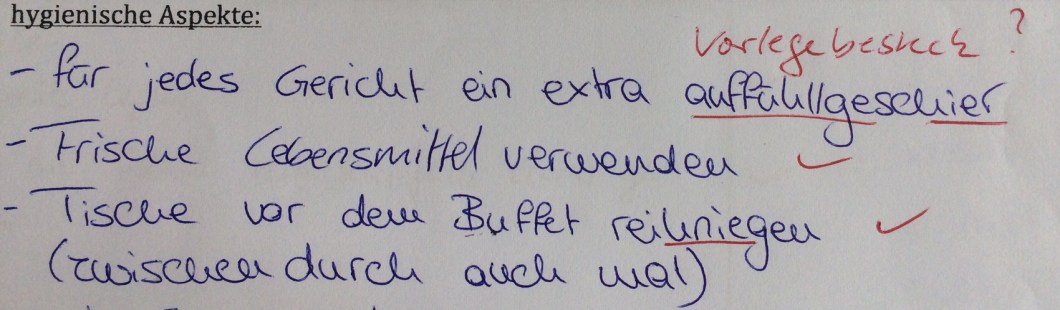 hygienische Aspekte:
Vorlegebesteck ?
- für jedes Gericht ein extra auffühllgeschier
- Frische Lebensmittel verwenden ✓
- Tische vor dem Buffet reihniegen ✓
(zwischen durch auch mal)